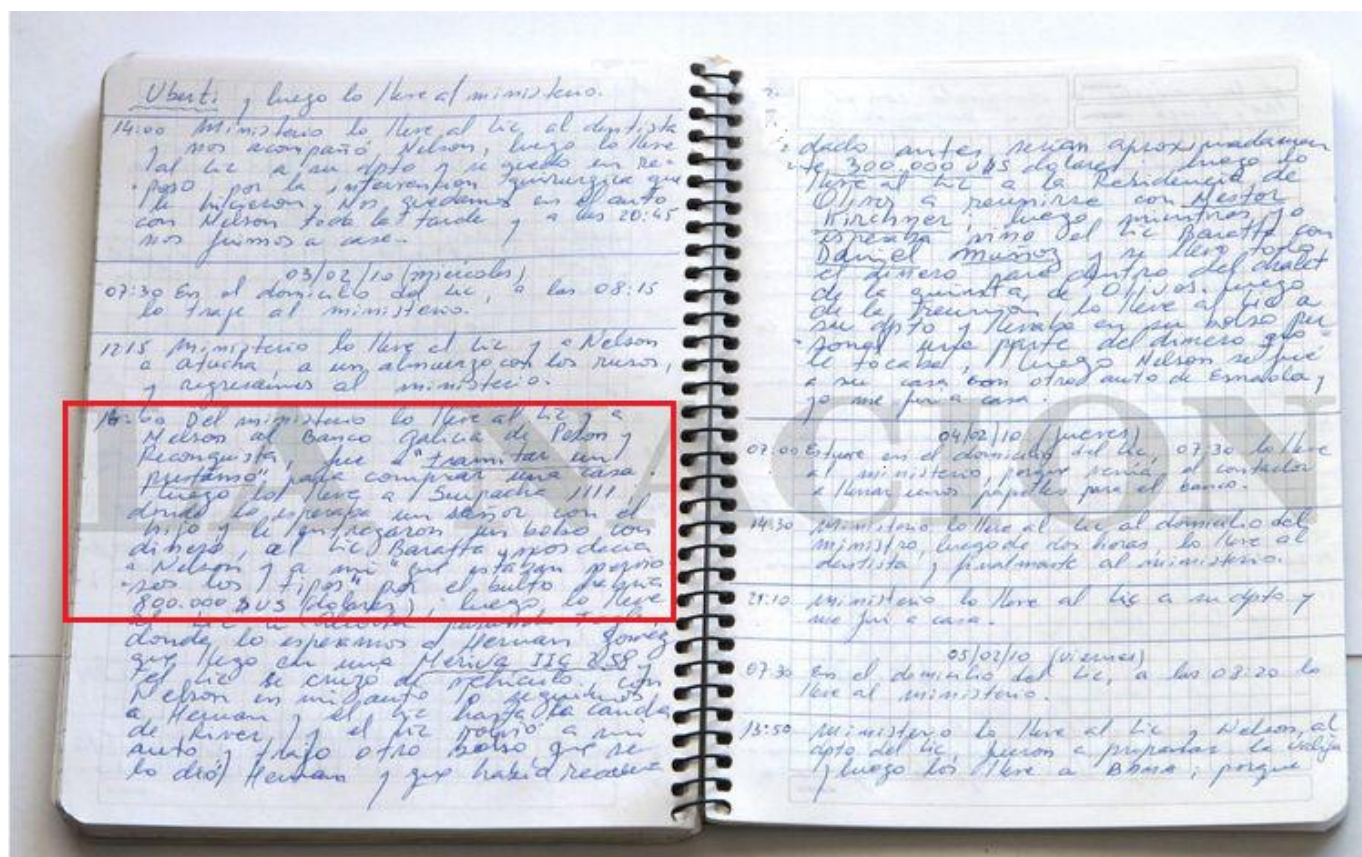 Uberti y luego lo lleve al ministerio.
14:00 Ministerio lo lleve al Lic al dentista
y nos acompañó Nelson, luego lo lleve
al Lic a su dpto y se quedo en re-
poso por la intervencion quirurgica que
le hicieron. Nos quedamos en el auto
con Nelson toda la tarde y a las 20:45
nos fuimos a casa.
03/02/10 (miercoles)
07:30 En el domicilio del Lic, a las 08:15
lo traje al ministerio.
12:15 Ministerio lo lleve al Lic y a Nelson
a atucha, a un almuerzo con los rusos,
y regresamos al ministerio.
Del ministerio lo lleve al Lic y a
Nelson al Banco Galicia de Peron y
Reconquista, fue a "tramitar un
prestamo", para comprar una casa.
luego los lleve a Suipacha 1111,
donde lo esperaba un señor con el
hijo y le entregaron un bolso con
dinero, al Lic Baratta y nos decia
a Nelson y a mi "que estaban
los tipos" por el bulto habria
800.000 $US (dolares); luego lo lleve
al Lic a
donde lo esperamos a Hernan Gomez
que llego en una Meriva IIG 258 y
el Lic se cruzo de vehiculo. Con
Nelson en mi auto lo seguimos
a Hernan y el Lic hasta la cancha
de River, y el Lic volvió a mi
auto y trajo otro bolso que se
lo dió Hernan y que habia recau
dado antes serian aproximadamen
te 300.000 U$S dolares. luego lo
lleve al Lic a la Residencia de
Olivos a reunirse con Nestor
Kirchner; luego mientras yo
esperaba vino el Lic Baratta con
Daniel Munoz y se llevo todo
el dinero para dentro del chalet
de la quinta de Olivos. luego
de la reunion, lo lleve al Lic a
su dpto y llevaba en su bolso per
sonal una parte del dinero que
le tocaba, luego Nelson se fue
a su casa con otro auto de Esmeralda y
yo me fui a casa.
04/02/10 (jueves)
07:00 Estuve en el domicilio del Lic, 07:30 lo lleve
al ministerio, porque venia el contador
a llenar unos papeles para el banco.
14:30 Ministerio lo lleve al Lic al domicilio del
ministro, luego de dos horas, lo lleve al
dentista y finalmente al ministerio.
21:10 Ministerio lo lleve al Lic a su dpto y
me fui a casa.
05/02/10 (viernes)
07:30 En el domicilio del Lic, a las 08:20 lo
lleve al ministerio.
13:50 Ministerio lo lleve al Lic y Nelson, al
dpto del Lic, fueron a preparar la valija
y luego los lleve a ; porque
LA NACION